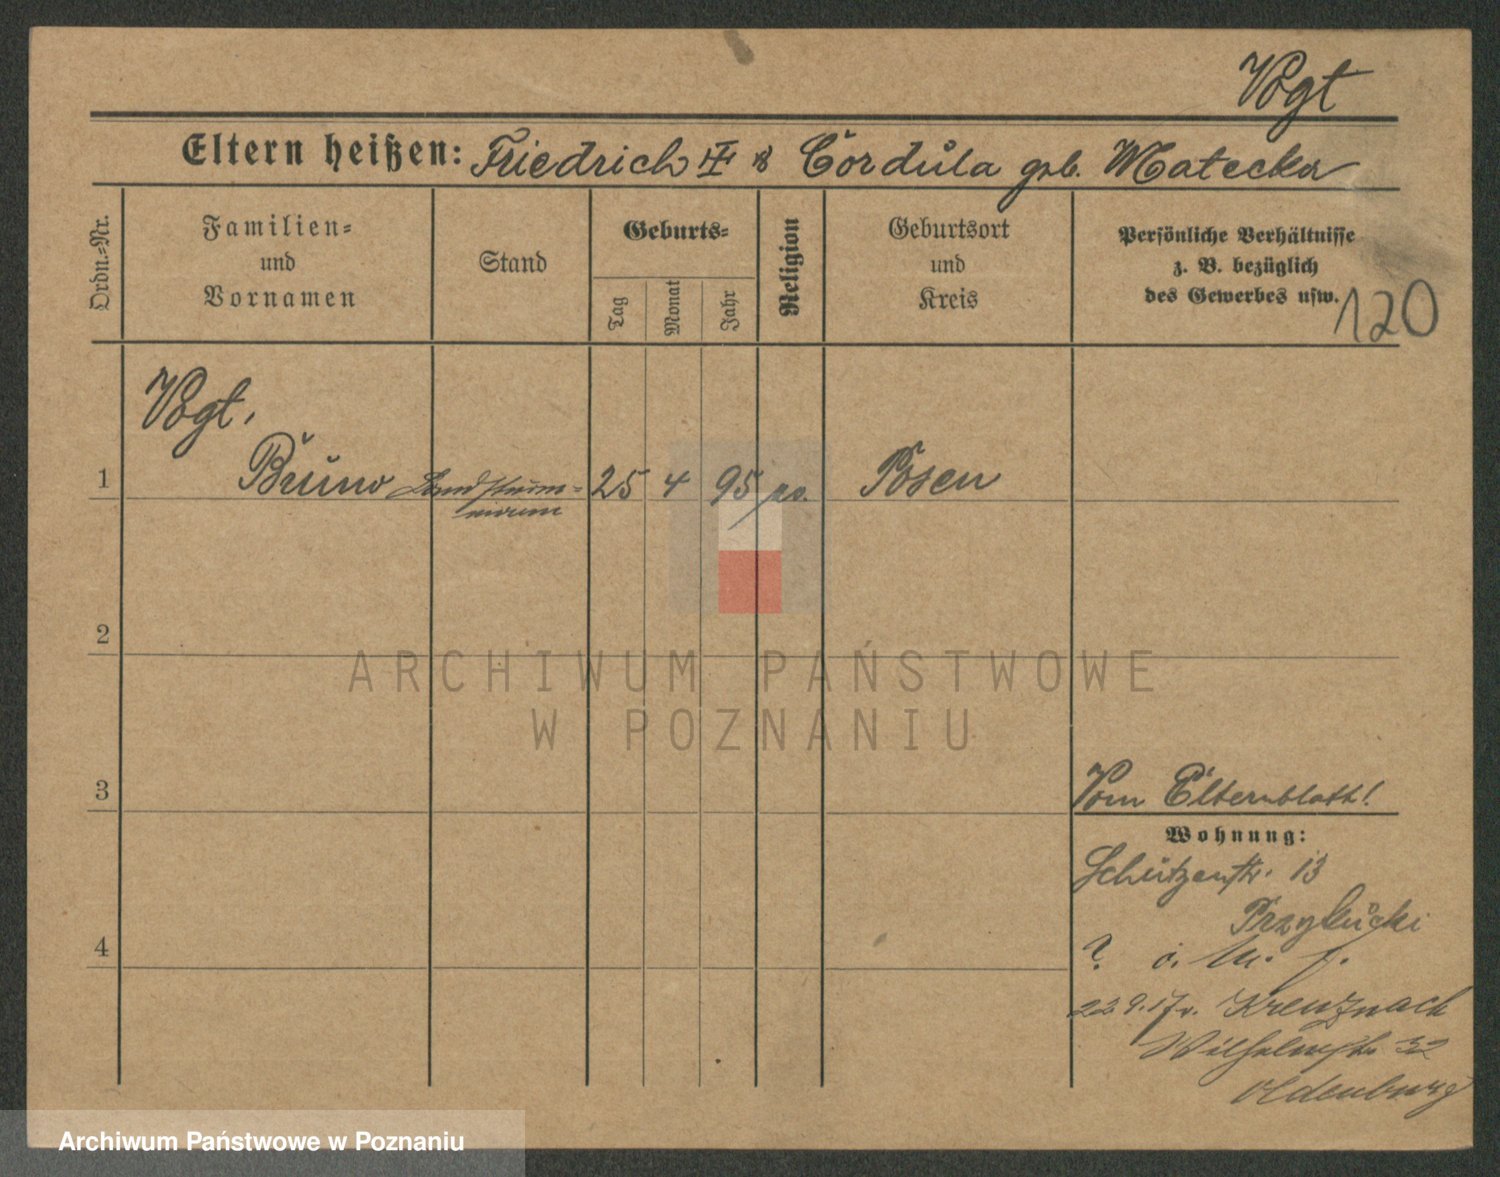 Vogt
Eltern heißen: Friedrich III & Cordula geb. Matecka
Ordn.-Nr.
Familien-
und
Vornamen
Stand
Geburts-
Tag
Monat
Jahr
Religion
Geburtsort
und
Kreis
Persönliche Verhältnisse
z. B. bezüglich
des Gewerbes usw.
120
Vogt,
1 Bruno Landsturm- 25 4 95 Posen
mann
2
3
4
ARCHIWUM PAŃSTWOWE
W POZNANIU
Vom Elternblatt!
Wohnung:
Schützenstr. 13
Przybucki
22.9.17 v. Kreuznach
Wilhelmstr. 32
Oldenburg
Archiwum Państwowe w Poznaniu